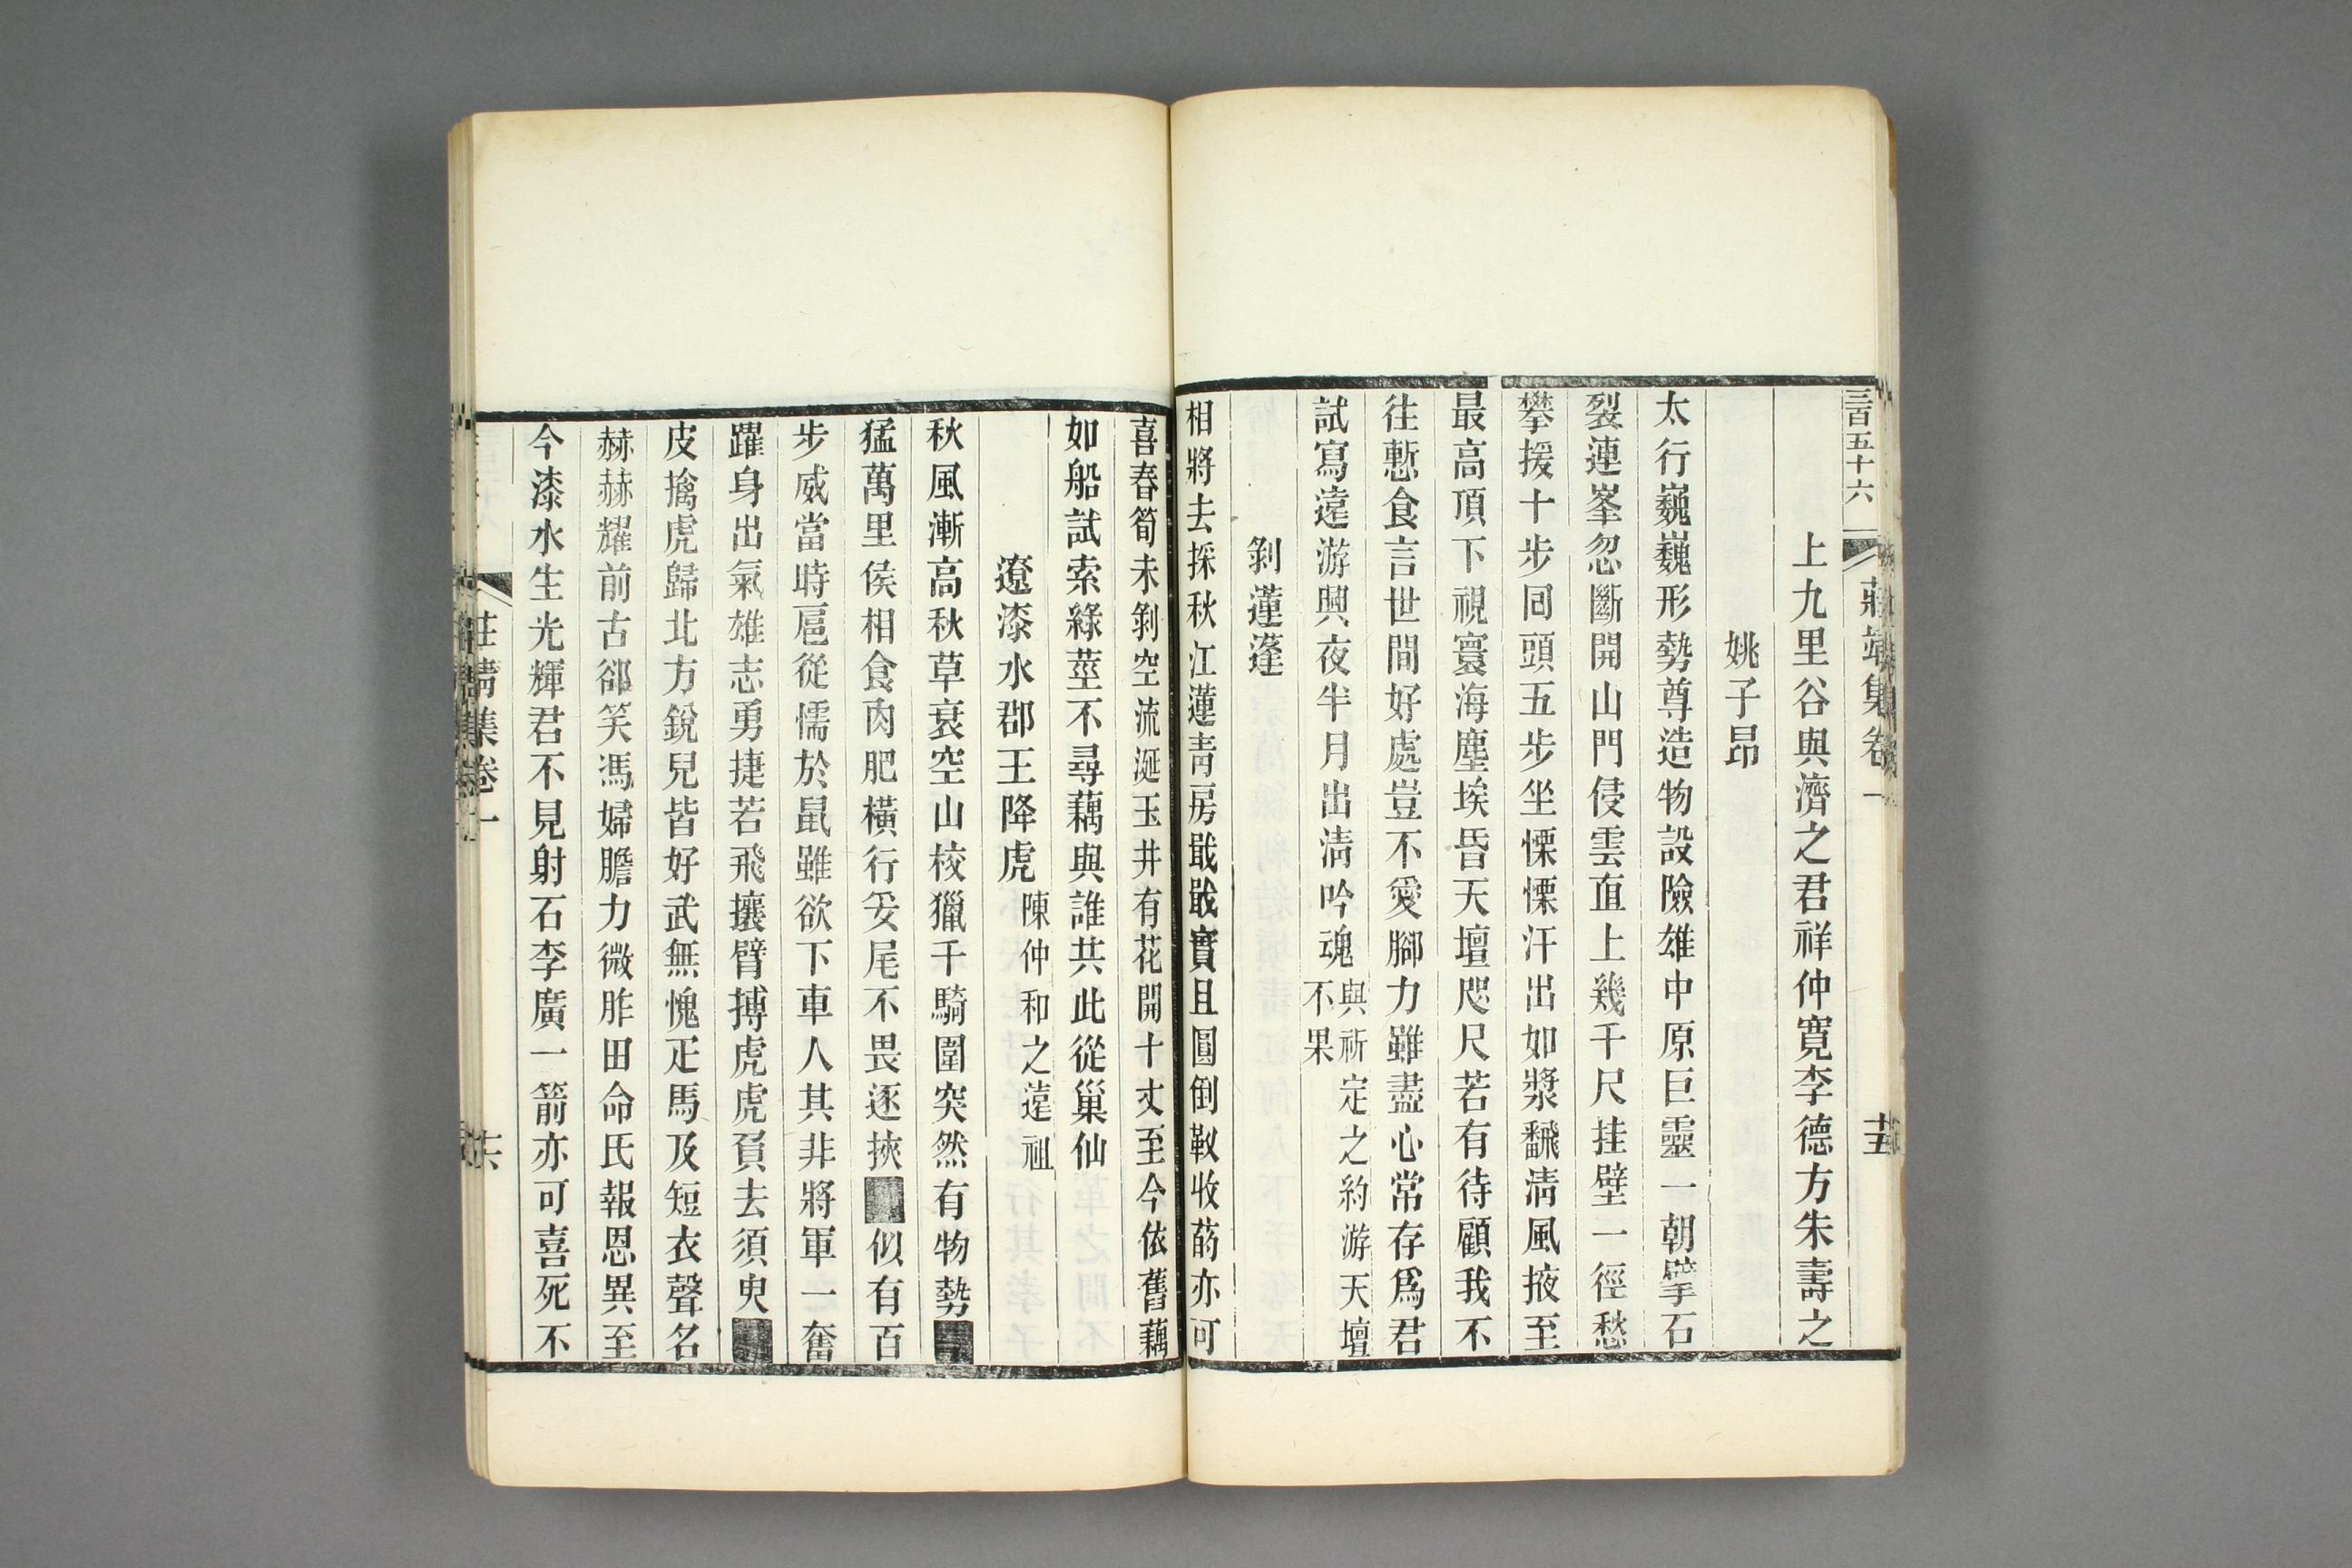 三百五十六
莊靖集卷一
十五
上九里谷與濟之君祥仲寬李德方朱壽之
姚子昂
太行巍巍形勢尊造物設險雄中原巨靈一朝擘石
裂連峯忽斷開山門侵雲直上幾千尺挂壁一徑愁
攀援十步回頭五步坐慄慄汗出如漿飜淸風掖至
最高頂下視寰海塵埃昏天壇咫尺若有待顧我不
往慙食言世間好處豈不愛腳力雖盡心常存爲君
試寫遠游興夜半月出淸吟魂與祈定之約游天壇
不果
剝蓮蓬
相將去採秋江蓮靑房戢戢實且圓倒㪺收菂亦可
喜春筍未剝空流涎玉井有花開十丈至今依舊藕
如船試索綠莖不尋藕與誰共此從巢仙
遼漆水郡王降虎陳仲和之遠祖
秋風漸高秋草衰空山校獵千騎圍突然有物勢■
猛萬里侯相食肉肥橫行妥尾不畏逐挾■似有百
步威當時扈從懦於鼠雖欲下車人其非將軍一奮
躍身出氣雄志勇捷若飛攘臂搏虎虎負去須臾■
皮擒虎歸北方銳兒皆好武無愧疋馬及短衣聲名
赫赫耀前古郤笑馮婦膽力微胙田命氏報恩異至
今漆水生光輝君不見射石李廣一箭亦可喜死不
莊靖集卷一
十六